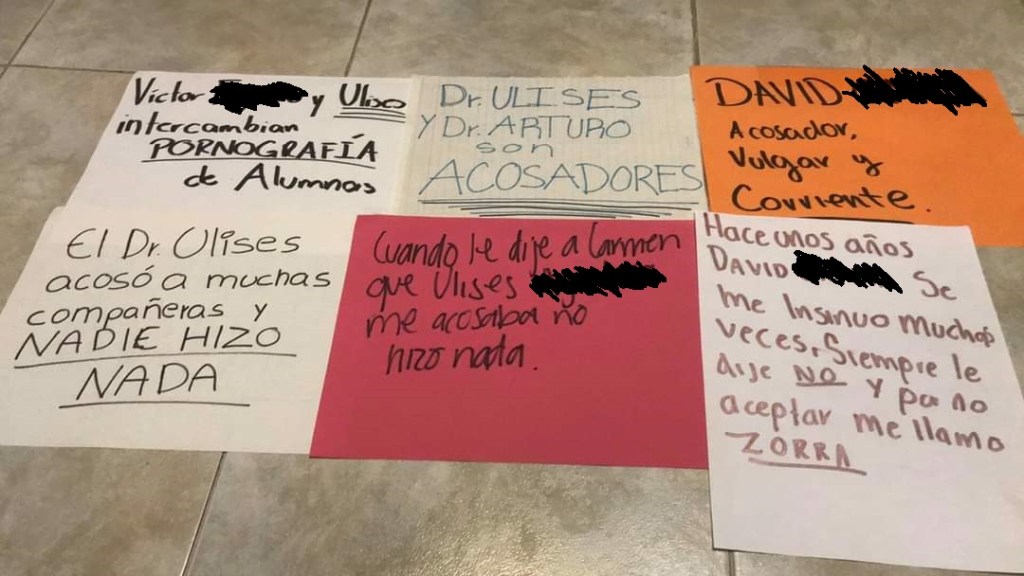 Víctor y Ulises
intercambian
PORNOGRAFÍA
de Alumnas
Dr. ULISES
Y Dr. ARTURO
son
ACOSADORES
DAVID
Acosador,
Vulgar y
Corriente.
El Dr. Ulises
acosó a muchas
compañeras y
NADIE HIZO
NADA
Cuando le dije a Carmen
que Ulises
me acosaba no
hizo nada.
Hace unos años
DAVID Se
me Insinuo muchas
veces, Siempre le
dije NO y por no
aceptar me llamo
ZORRA